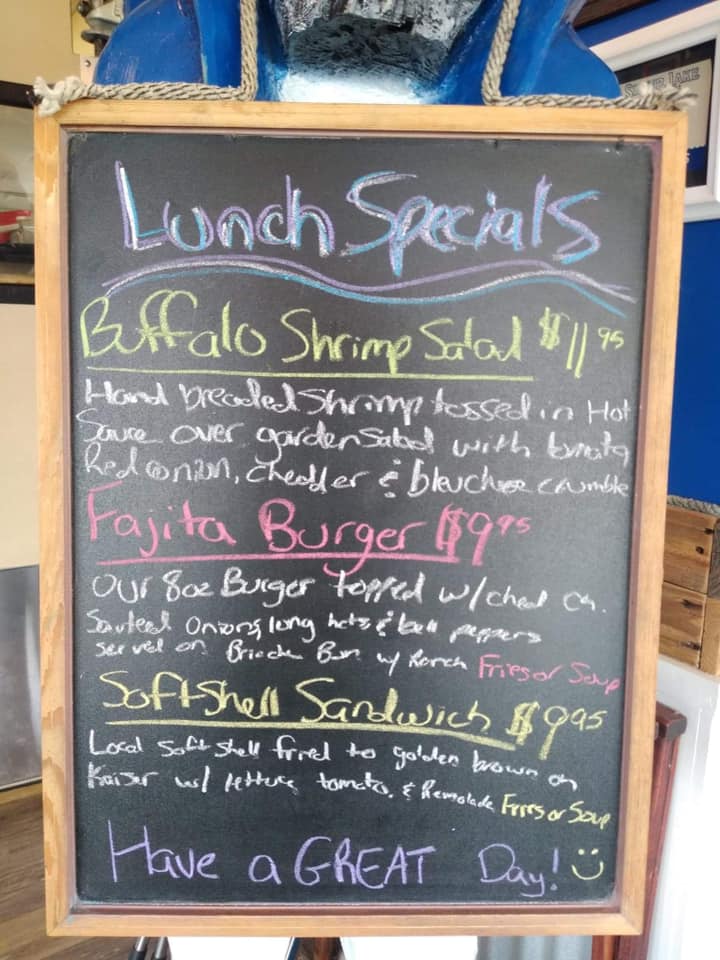 Lunch Specials
Buffalo Shrimp Salad $11 95
Hand breaded Shrimp tossed in Hot
Sauce over garden Salad with tomato
Red onion, chedder & bleucheese crumble
Fajita Burger $9 95
Our 8oz Burger topped w/ched ch.
Sauteed Onions, long hots & bell peppers
served on Brioche Bun w/ Ranch Fries or Soup
Softshell Sandwich $9 95
Local Soft Shell fried to golden brown on
Kaiser w/ lettuce tomato, & Remolade Fries or Soup
Have a GREAT Day!
LAKE